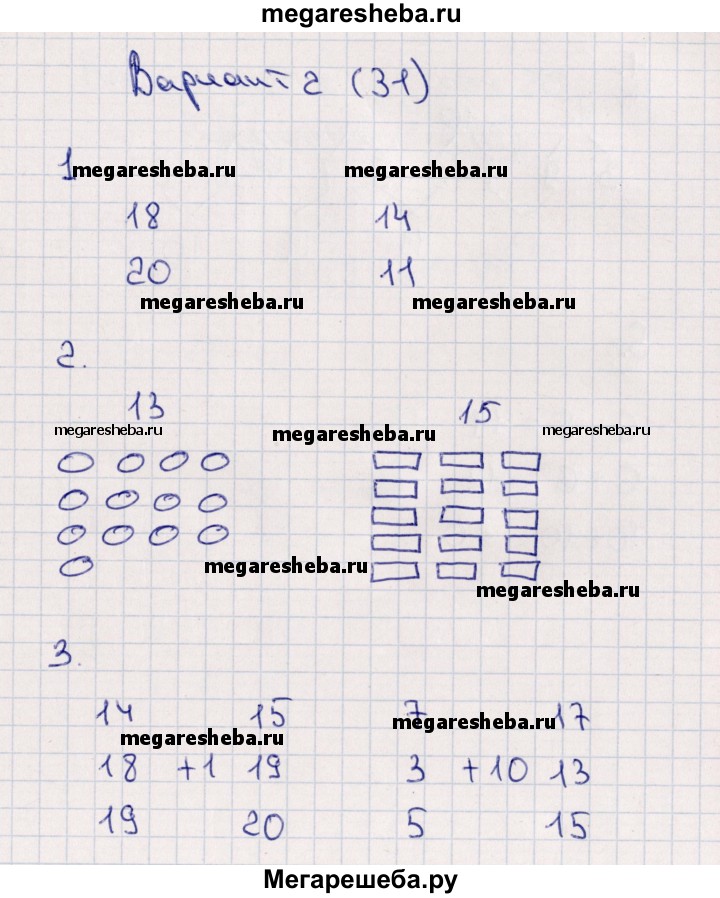 megaresheba.ru
Вариант 2 (31)
1 megaresheba.ru megaresheba.ru
18 14
20 11
megaresheba.ru megaresheba.ru
2.
13 15
megaresheba.ru megaresheba.ru megaresheba.ru
megaresheba.ru
megaresheba.ru
3.
14 15 7 17
megaresheba.ru megaresheba.ru
18 +1 19 3 +10 13
19 20 5 15
Мегарешеба.ру